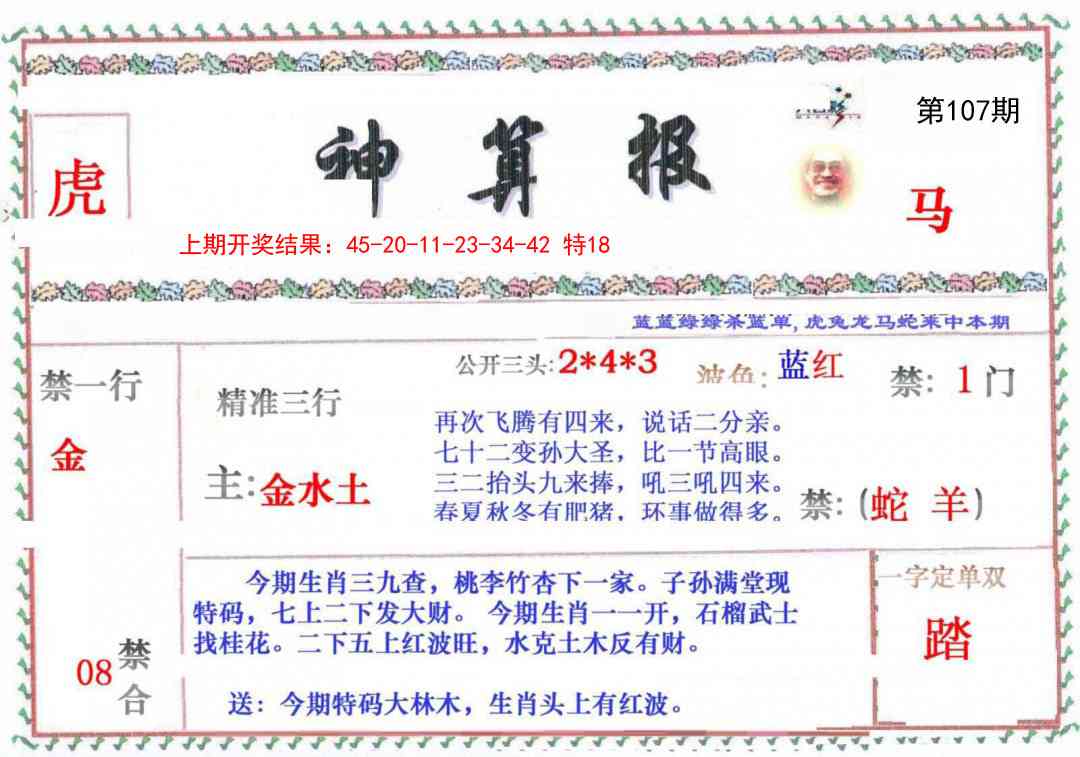 第107期
神算报
虎
马
上期开奖结果：45-20-11-23-34-42 特18
蓝蓝绿绿杀蓝单，虎兔龙马蛇来中本期
禁一行
金
精准三行
主:金水土
公开三头:2*4*3
波色:蓝红
禁:1门
再次飞腾有四来，说话二分亲。
七十二变孙大圣，比一节高眼。
三二抬头九来捧，吼三吼四来。
春夏秋冬有肥猪，环事做得多。
禁:(蛇 羊)
今期生肖三九查，桃李竹杏下一家。子孙满堂现
特码，七上二下发大财。 今期生肖一一开，石榴武士
找桂花。二下五上红波旺，水克土木反有财。
送：今期特码大林木，生肖头上有红波。
08
禁合
一字定单双
踏